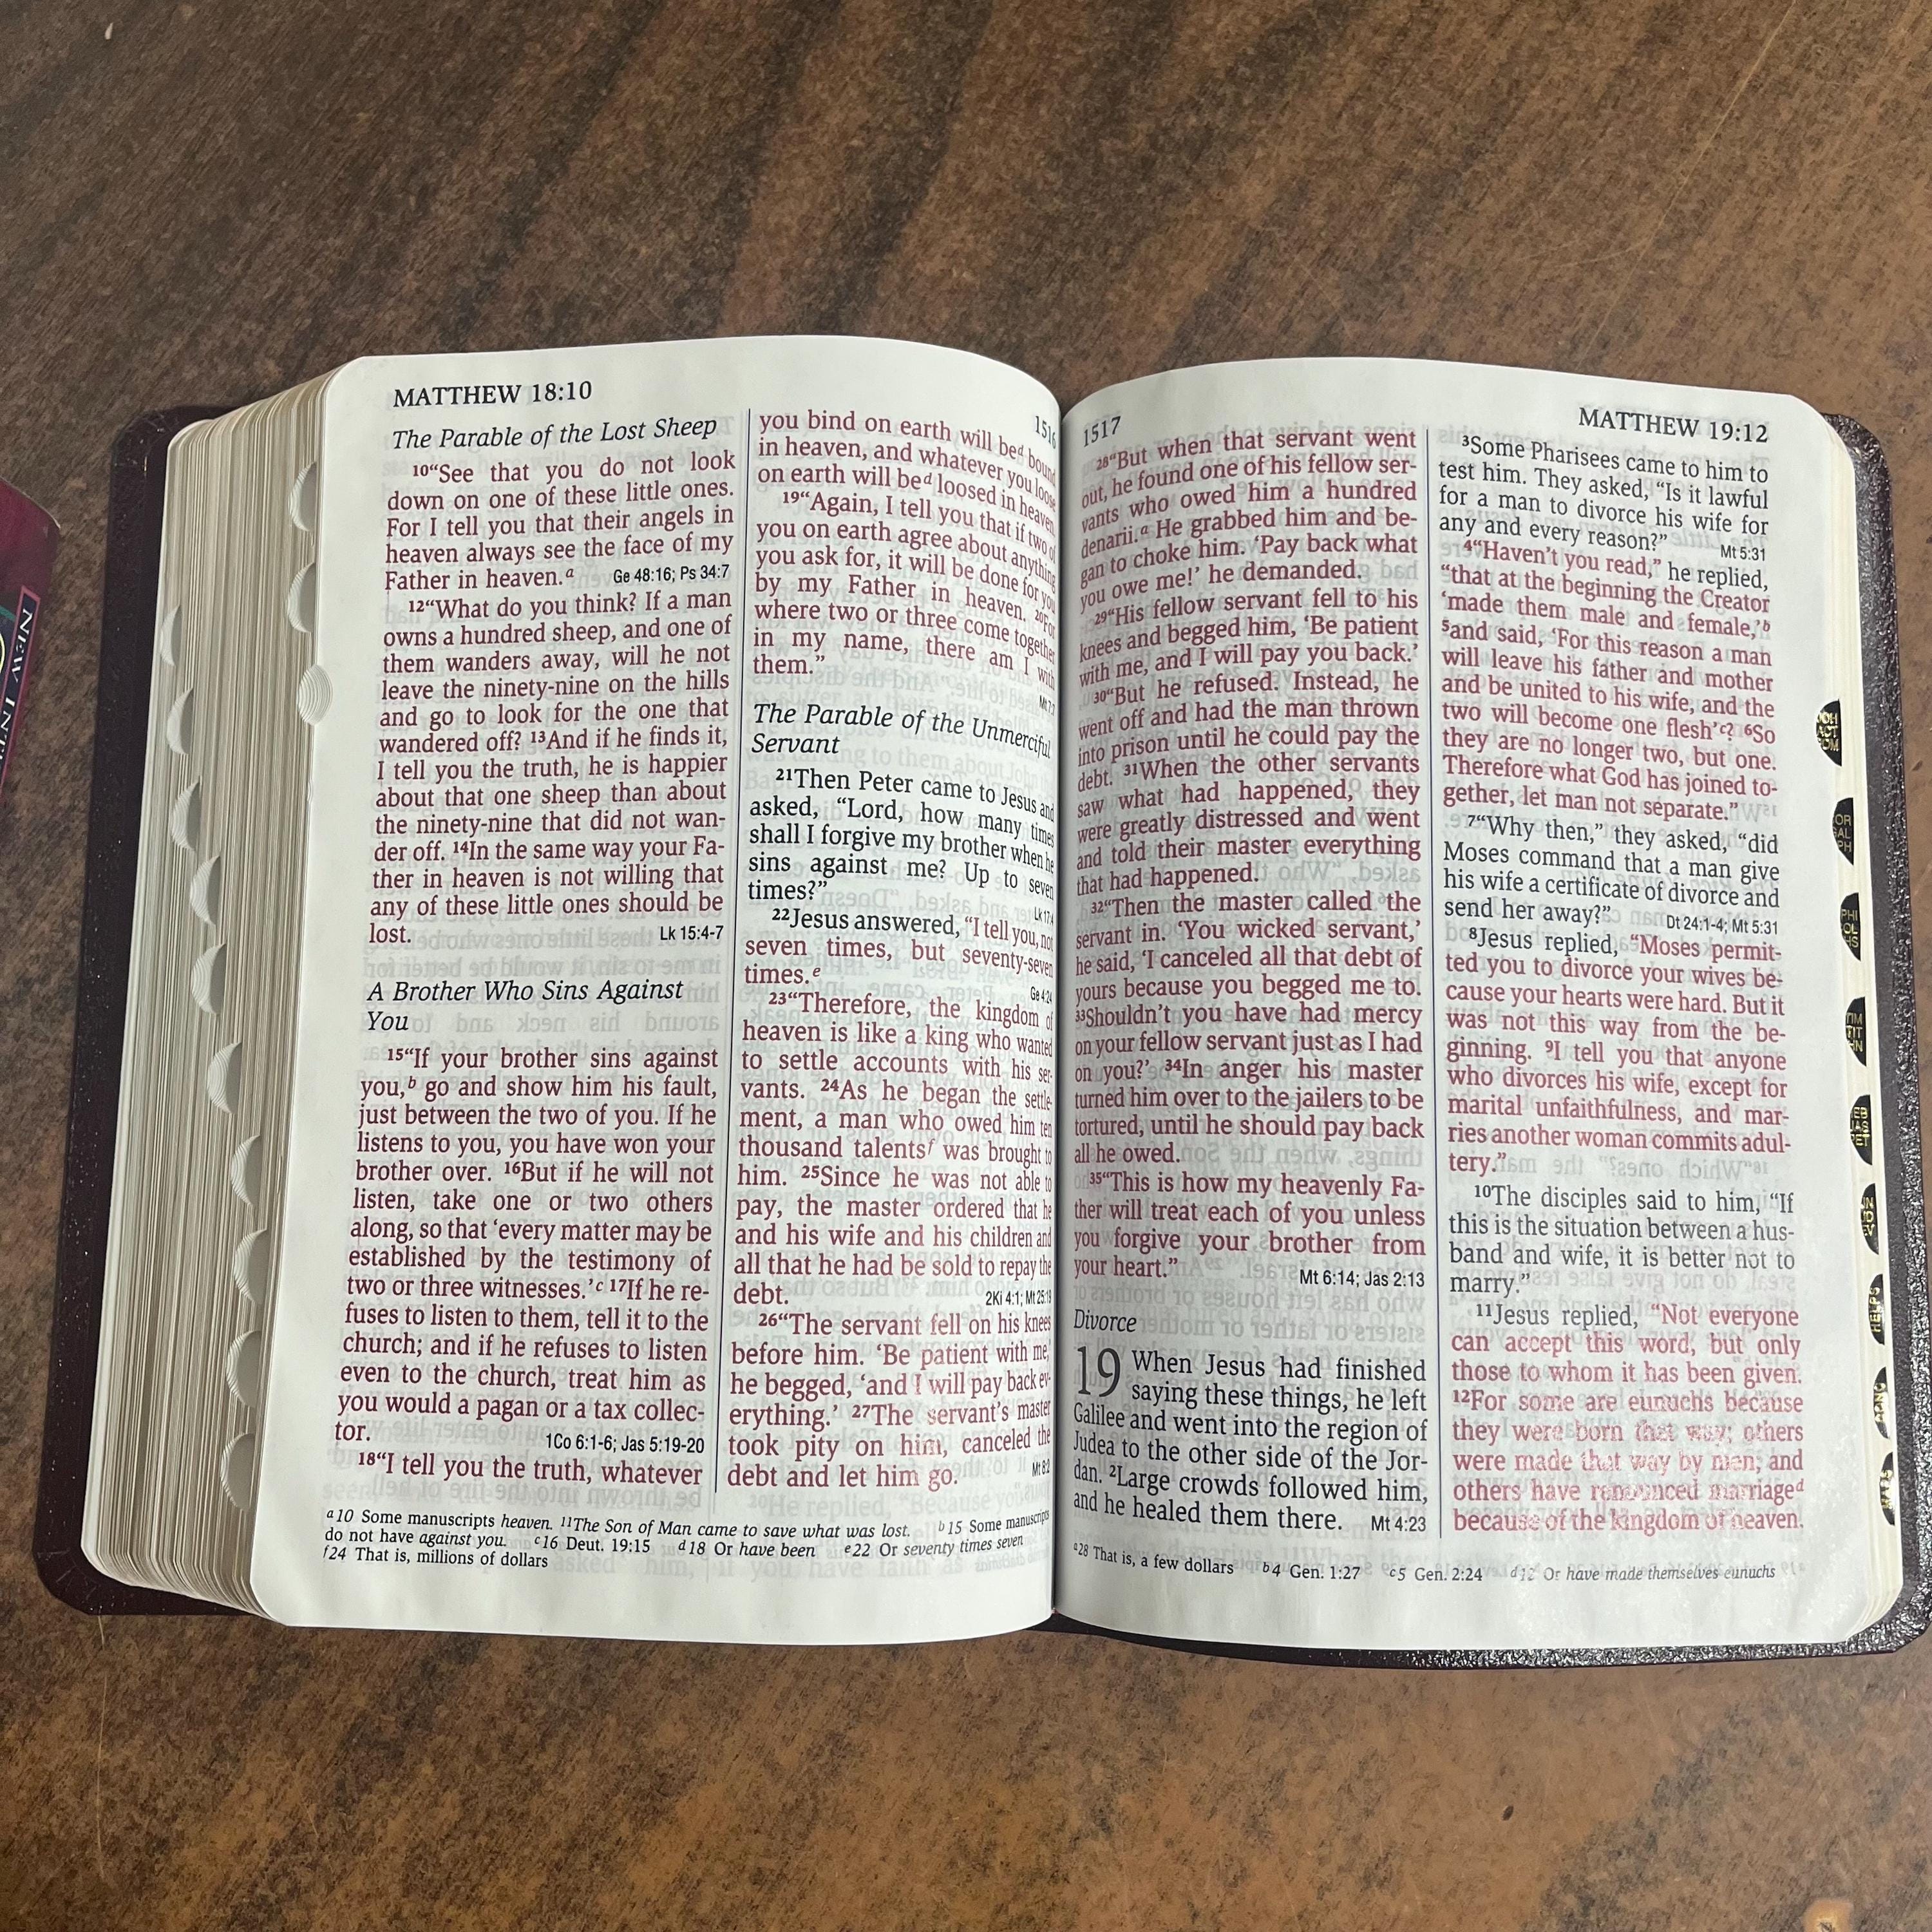 MATTHEW 18:10
The Parable of the Lost Sheep
10“See that you do not look
down on one of these little ones.
For I tell you that their angels in
heaven always see the face of my
Father in heaven.a Ge 48:16; Ps 34:7
12“What do you think? If a man
owns a hundred sheep, and one of
them wanders away, will he not
leave the ninety-nine on the hills
and go to look for the one that
wandered off? 13And if he finds it,
I tell you the truth, he is happier
about that one sheep than about
the ninety-nine that did not wan-
der off. 14In the same way your Fa-
ther in heaven is not willing that
any of these little ones should be
lost. Lk 15:4-7
A Brother Who Sins Against
You
15“If your brother sins against
you,b go and show him his fault,
just between the two of you. If he
listens to you, you have won your
brother over. 16But if he will not
listen, take one or two others
along, so that ‘every matter may be
established by the testimony of
two or three witnesses.’c 17If he re-
fuses to listen to them, tell it to the
church; and if he refuses to listen
even to the church, treat him as
you would a pagan or a tax collec-
tor. 1Co 6:1-6; Jas 5:19-20
18“I tell you the truth, whatever
1516
you bind on earth will bed bound
in heaven, and whatever you loose
on earth will bed loosed in heaven.
19“Again, I tell you that if two of
you on earth agree about anything
you ask for, it will be done for you
by my Father in heaven. 20For
where two or three come together
in my name, there am I with
them.” Mt 7:7
The Parable of the Unmerciful
Servant
21Then Peter came to Jesus and
asked, “Lord, how many times
shall I forgive my brother when he
sins against me? Up to seven
times?” Lk 17:4
22Jesus answered, “I tell you, not
seven times, but seventy-seven
times.e Ge 4:24
23“Therefore, the kingdom of
heaven is like a king who wanted
to settle accounts with his ser-
vants. 24As he began the settle-
ment, a man who owed him ten
thousand talentsf was brought to
him. 25Since he was not able to
pay, the master ordered that he
and his wife and his children and
all that he had be sold to repay the
debt. 2Ki 4:1; Mt 25:19
26“The servant fell on his knees
before him. ‘Be patient with me,’
he begged, ‘and I will pay back ev-
erything.’ 27The servant’s master
took pity on him, canceled the
debt and let him go. Mt 8:2
a10 Some manuscripts heaven. 11The Son of Man came to save what was lost. b15 Some manuscripts
do not have against you. c16 Deut. 19:15 d18 Or have been e22 Or seventy times seven
f24 That is, millions of dollars
1517
MATTHEW 19:12
28“But when that servant went
out, he found one of his fellow ser-
vants who owed him a hundred
denarii.a He grabbed him and be-
gan to choke him. ‘Pay back what
you owe me!’ he demanded.
29“His fellow servant fell to his
knees and begged him, ‘Be patient
with me, and I will pay you back.’
30“But he refused. Instead, he
went off and had the man thrown
into prison until he could pay the
debt. 31When the other servants
saw what had happened, they
were greatly distressed and went
and told their master everything
that had happened.
32“Then the master called the
servant in. ‘You wicked servant,’
he said, ‘I canceled all that debt of
yours because you begged me to.
33Shouldn’t you have had mercy
on your fellow servant just as I had
on you?’ 34In anger his master
turned him over to the jailers to be
tortured, until he should pay back
all he owed.
35“This is how my heavenly Fa-
ther will treat each of you unless
you forgive your brother from
your heart.” Mt 6:14; Jas 2:13
Divorce
19 When Jesus had finished
saying these things, he left
Galilee and went into the region of
Judea to the other side of the Jor-
dan. 2Large crowds followed him,
and he healed them there. Mt 4:23
3Some Pharisees came to him to
test him. They asked, “Is it lawful
for a man to divorce his wife for
any and every reason?” Mt 5:31
4“Haven’t you read,” he replied,
“that at the beginning the Creator
‘made them male and female,’b
5and said, ‘For this reason a man
will leave his father and mother
and be united to his wife, and the
two will become one flesh’c? 6So
they are no longer two, but one.
Therefore what God has joined to-
gether, let man not separate.”
7“Why then,” they asked, “did
Moses command that a man give
his wife a certificate of divorce and
send her away?” Dt 24:1-4; Mt 5:31
8Jesus replied, “Moses permit-
ted you to divorce your wives be-
cause your hearts were hard. But it
was not this way from the be-
ginning. 9I tell you that anyone
who divorces his wife, except for
marital unfaithfulness, and mar-
ries another woman commits adul-
tery.”
10The disciples said to him, “If
this is the situation between a hus-
band and wife, it is better not to
marry.”
11Jesus replied, “Not everyone
can accept this word, but only
those to whom it has been given.
12For some are eunuchs because
they were born that way; others
were made that way by men; and
others have renounced marriaged
because of the kingdom of heaven.
a28 That is, a few dollars b4 Gen. 1:27 c5 Gen. 2:24 d12 Or have made themselves eunuchs
HELPS
NEW